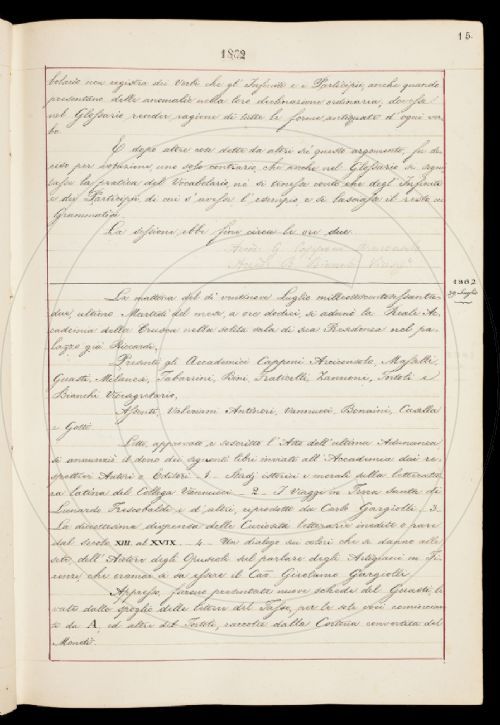 15.
1862
bolario non registra dei Verbi che gl' Infiniti e i Participii, anche quando
presentano delle anomalie nella loro declinazione ordinaria, dovesse
nel Glossario render ragione di tutte le forme antiquate d'ogni ver-
bo.
E dopo altre cose dette da altri su questo argomento, fu de-
ciso per votazione, uno solo contrario, che anche nel Glossario si segui-
tasse la pratica del Vocabolario, nè si tenesse conto che degl' Infiniti
e dei Participii di cui s'avesse l'esempio e si lasciasse il resto ai
Grammatici.
La sessione ebbe fine circa le ore due.
Accad. G. Capponi Arciconsolo
Accad. B. Bianchi Vicesegr.º
1862
29 Luglio
La mattina del dì ventinove Luglio milleottocentosessanta-
due, ultimo Martedì del mese, a ore dodici, si adunò la Reale Ac-
cademia della Crusca nella solita sala di sua Residenza nel pa-
lazzo già Riccardi.
Presenti gli Accademici Capponi Arciconsolo, Masselli,
Guasti, Milanesi, Tabarrini, Bini, Fraticelli, Zannoni, Tortoli e
Bianchi Vicesegretario.
Assenti, Valeriani, Antinori, Vannucci, Bonaini, Casella
e Gotti.
Letto, approvato e soscritto l'Atto dell'ultima Adunanza
si annunziò il dono dei seguenti libri inviati all'Accademia dai re-
spettivi Autori o Editori. 1 - Studj istorici e morali della letteratu-
ra latina del Collega Vannucci - 2 - I Viaggi in Terra Santa di
Lionardo Frescobaldi e d'altri, riprodotti da Carlo Gargiolli - 3 -
La diciottesima dispensa delle Curiosità letterarie inedite o rare
dal secolo XIII. al XVII. - 4 - Un dialogo sui colori che si danno alle
sete, dell'Autore degli Opuscoli sul parlare degli Artigiani in Fi-
renze, che oramai si sa essere il Cav. Girolamo Gargiolli.
Appresso, furono presentate nuove schede dal Guasti, le-
vate dallo spoglio delle lettere del Tasso, per le sole voci comincian-
ti da A, ed altre dal Tortoli, raccolte dalla Cortona convertita del
Moneti.